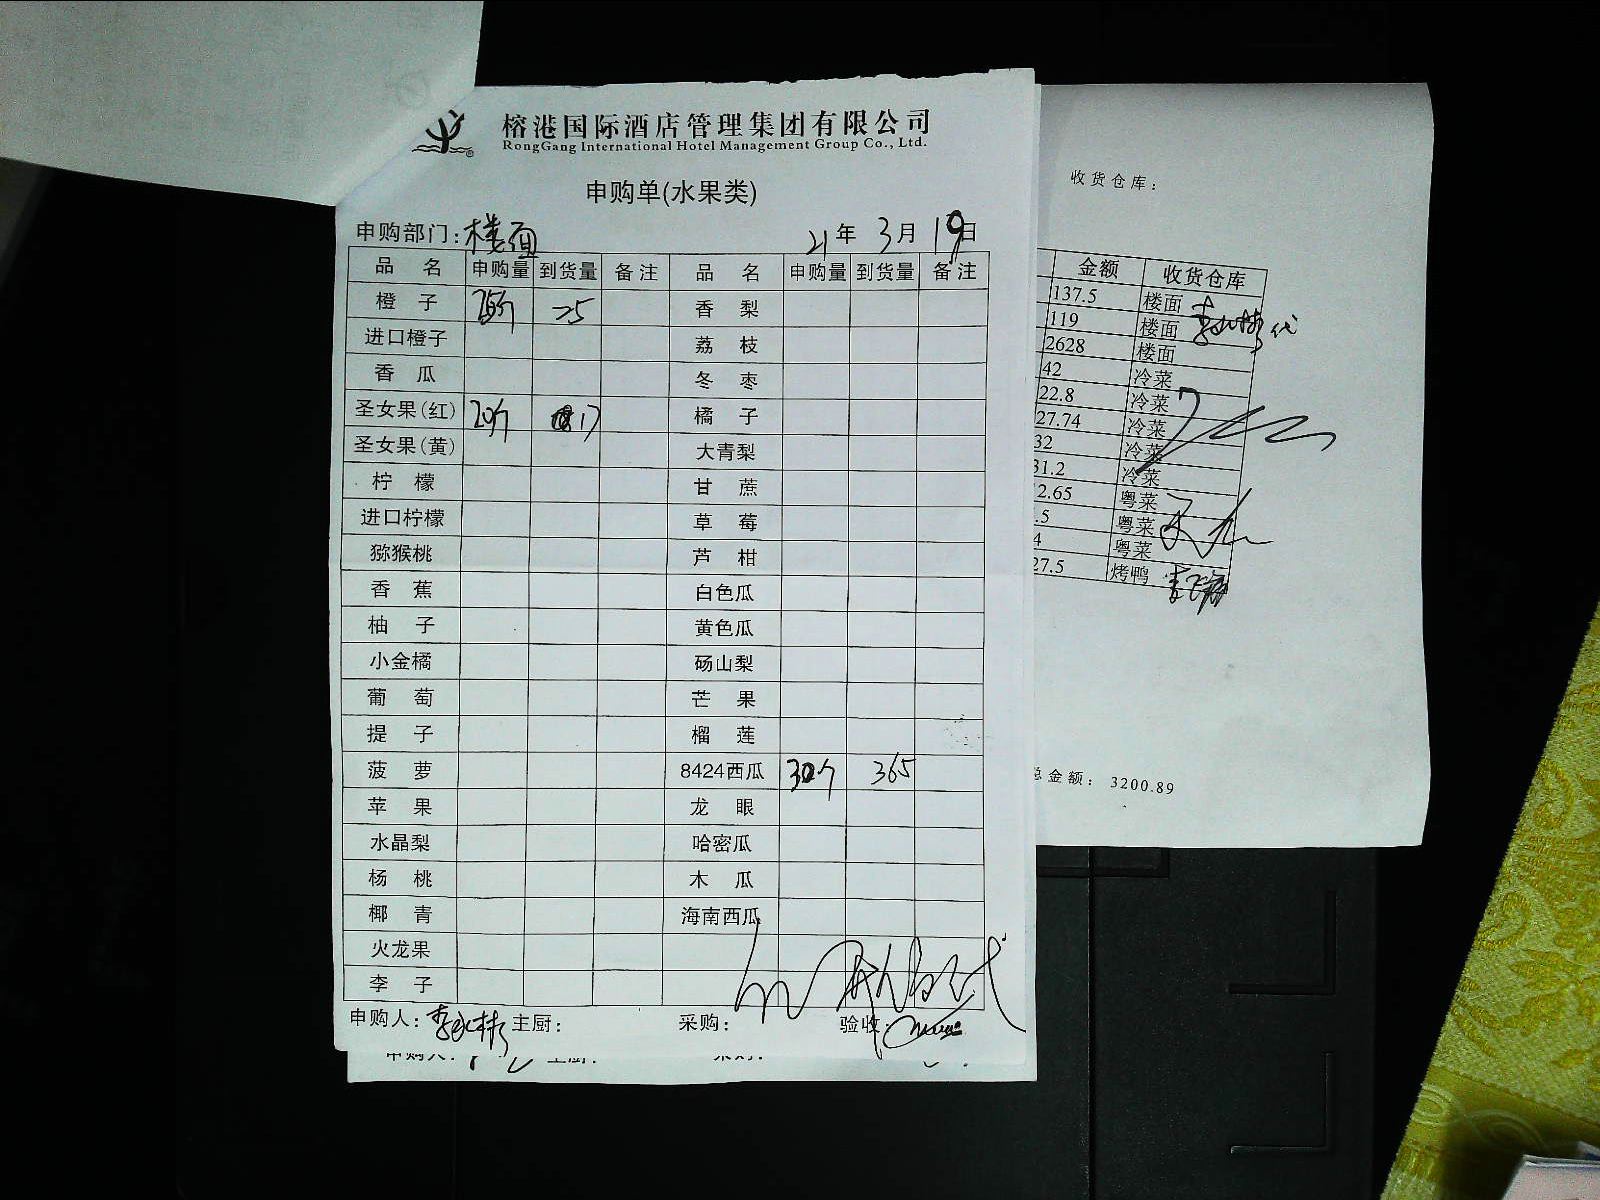 榕港国际酒店管理集团有限公司
RongGang International Hotel Management Group Co., Ltd.
申购单(水果类)
申购部门：楼面 21年 3月 19日
品 名 申购量 到货量 备注 品 名 申购量 到货量 备注
橙 子 25 香 梨
进口橙子 荔 枝
香 瓜 冬 枣
圣女果(红) 17 橘 子
圣女果(黄) 大青梨
柠 檬 甘 蔗
进口柠檬 草 莓
猕猴桃 芦 柑
香 蕉 白色瓜
柚 子 黄色瓜
小金橘 砀山梨
葡 萄 芒 果
提 子 榴 莲
菠 萝 8424西瓜 30个 365
苹 果 龙 眼
水晶梨 哈密瓜
杨 桃 木 瓜
椰 青 海南西瓜
火龙果
李 子
申购人： 主厨： 采购： 验收：
申购人： 主厨： 采购：
收货仓库：
金额 收货仓库
137.5 楼面
119 楼面
2628 楼面
42 冷菜
22.8 冷菜
27.74 冷菜
32 冷菜
31.2 冷菜
2.65 粤菜
.5 粤菜
4 粤菜
27.5 烤鸭
总金额：3200.89